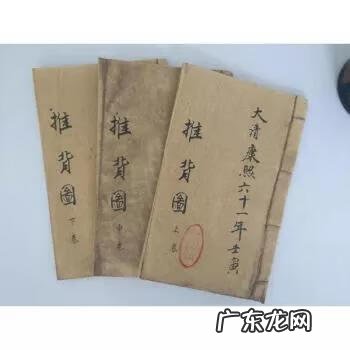 推背圖
下卷
推背圖
中卷
大清康熙六十一年壬寅
推背圖
上卷
广东龙网